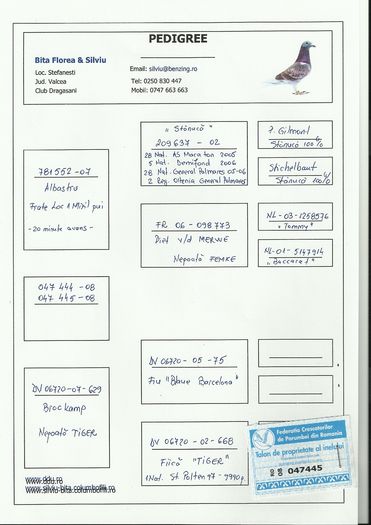 PEDIGREE
Bita Florea & Silviu
Loc. Stefanesti
Jud. Valcea
Club Dragasani
Email: silviu@benzing.ro
Tel: 0250 830 447
Mobil: 0747 663 663
781552-07
Albastru
Frate Loc 1 Mixil pui
-20 minute avans-
"Stănucă"
209637 - 02
28 Nat. AS Maraton 2005
5 Nat. Demifond 2006
26 Nat. General Palmares 05-06
2 Reg. Oltenia General Palmares
Stănucă 100%
Stichelbaut
Stănucă 100%
FR 06 - 098773
Din v/d MERWE
Nepoată FEMKE
NL-03-1258576
"Tommy"
NL-01-5147914
"Baccara"
047 444 -08
047 445 -08
DV 06720-07-629
Brockamp
Nepoată TIGER
DV 06720 - 05 - 75
Fiu "Blaue Barcelona"
DV 06720 - 02 - 668
Fiică "TIGER"
1 Nat. St Polten 97 - 7990p.
Federatia Crescatorilor
de Porumbei din Romania
Talon de proprietate al inelului
047445
www.ddu.ro
www.silviu-bita.columbofili.ro